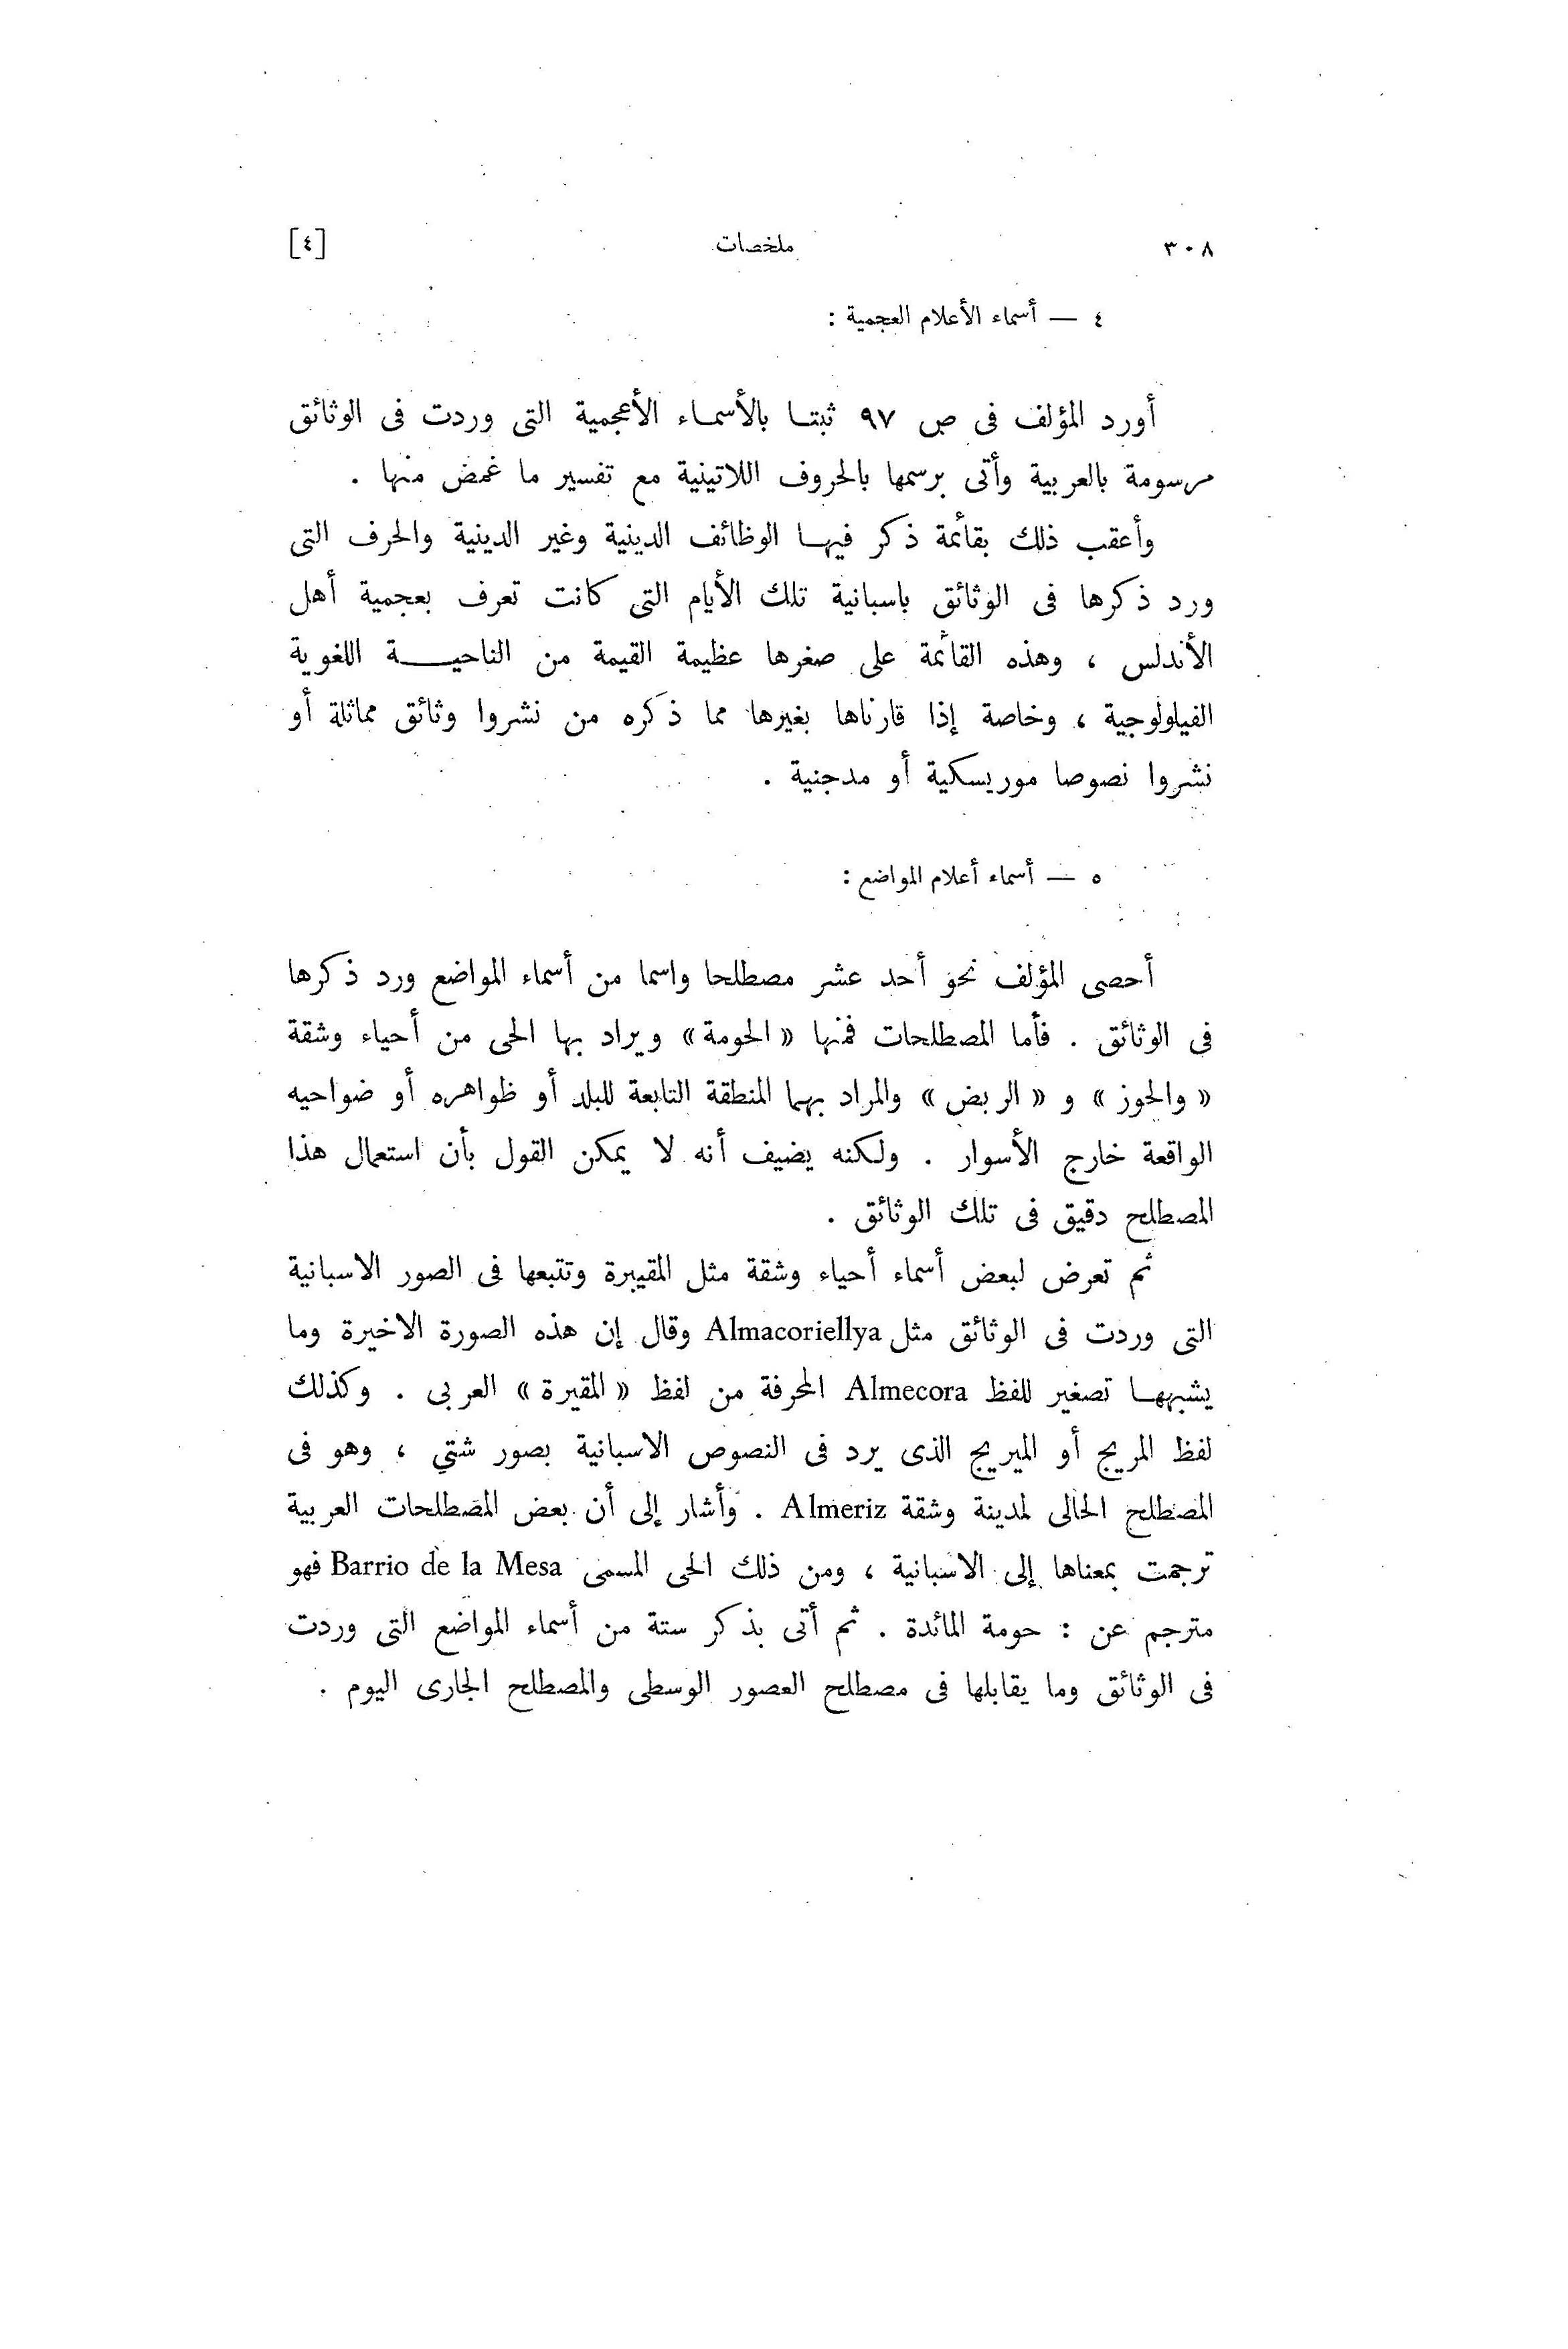 ٣٠٨ ملخصات [٤]
٤ — أسماء الأعلام العجمية :
أورد المؤلف فى ص ٩٧ ثبتا بالأسماء الأعجمية التى وردت فى الوثائق
مرسومة بالعربية وأتى برسمها بالحروف اللاتينية مع تفسير ما غمض منها .
وأعقب ذلك بقائمة ذكر فيها الوظائف الدينية وغير الدينية والحرف التى
ورد ذكرها فى الوثائق باسبانية تلك الأيام التى كانت تعرف بعجمية أهل
الأندلس ، وهذه القائمة على صغرها عظيمة القيمة من الناحية اللغوية
الفيلولوجية ، وخاصة إذا قارناها بغيرها مما ذكره من نشروا وثائق مماثلة أو
نشروا نصوصا موريسكية أو مدجنية .
٥ — أسماء أعلام المواضع :
أحصى المؤلف نحو أحد عشر مصطلحا واسما من أسماء المواضع ورد ذكرها
فى الوثائق . فأما المصطلحات فمنها « الحومة » ويراد بها الحى من أحياء وشقة
« والحوز » و « الربض » والمراد بهما المنطقة التابعة للبلد أو ظواهره أو ضواحيه
الواقعة خارج الأسوار . ولكنه يضيف أنه لا يمكن القول بأن استعمال هذا
المصطلح دقيق فى تلك الوثائق .
ثم تعرض لبعض أسماء أحياء وشقة مثل المقيبرة وتتبعها فى الصور الاسبانية
التى وردت فى الوثائق مثل Almacoriellya وقال إن هذه الصورة الاخيرة وما
يشبهها تصغير للفظ Almecora المحرفة من لفظ « المقبرة » العربى . وكذلك
لفظ المريج أو الميريج الذى يرد فى النصوص الاسبانية بصور شتي ، وهو فى
المصطلح الحالى لمدينة وشقة Almeriz . وأشار إلى أن بعض المصطلحات العربية
ترجمت بمعناها إلى الاسبانية ، ومن ذلك الحى المسمى Barrio de la Mesa فهو
مترجم عن : حومة المائدة . ثم أتى بذكر ستة من أسماء المواضع التى وردت
فى الوثائق وما يقابلها فى مصطلح العصور الوسطى والمصطلح الجارى اليوم .